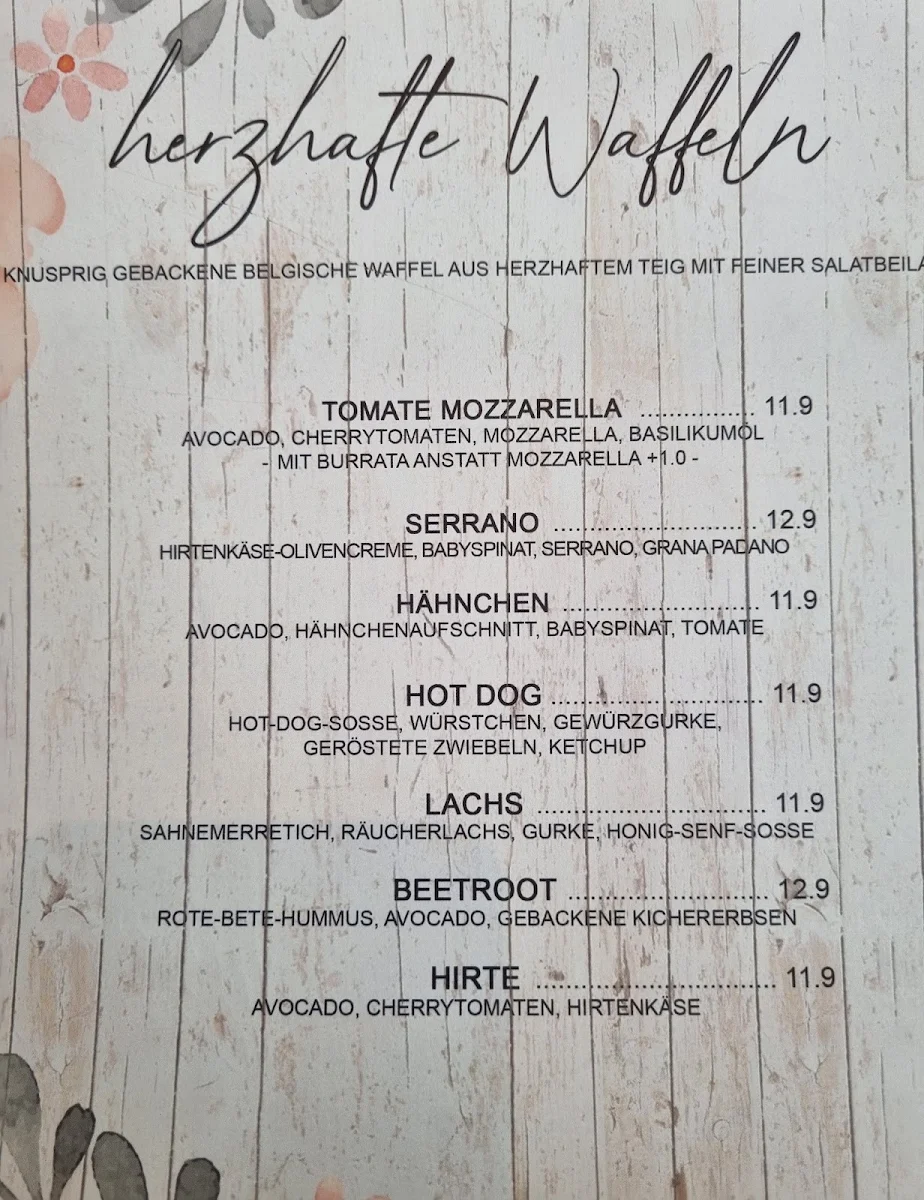 herzhafte Waffeln
KNUSPRIG GEBACKENE BELGISCHE WAFFEL AUS HERZHAFTEM TEIG MIT FEINER SALATBEILA
TOMATE MOZZARELLA ................. 11.9
AVOCADO, CHERRYTOMATEN, MOZZARELLA, BASILIKUMÖL
- MIT BURRATA ANSTATT MOZZARELLA +1.0 -
SERRANO ............................. 12.9
HIRTENKÄSE-OLIVENCREME, BABYSPINAT, SERRANO, GRANA PADANO
HÄHNCHEN ............................ 11.9
AVOCADO, HÄHNCHENAUFSCHNITT, BABYSPINAT, TOMATE
HOT DOG .............................. 11.9
HOT-DOG-SOSSE, WÜRSTCHEN, GEWÜRZGURKE,
GERÖSTETE ZWIEBELN, KETCHUP
LACHS ................................ 11.9
SAHNEMERRETICH, RÄUCHERLACHS, GURKE, HONIG-SENF-SOSSE
BEETROOT ............................ 12.9
ROTE-BETE-HUMMUS, AVOCADO, GEBACKENE KICHERERBSEN
HIRTE .................................. 11.9
AVOCADO, CHERRYTOMATEN, HIRTENKÄSE